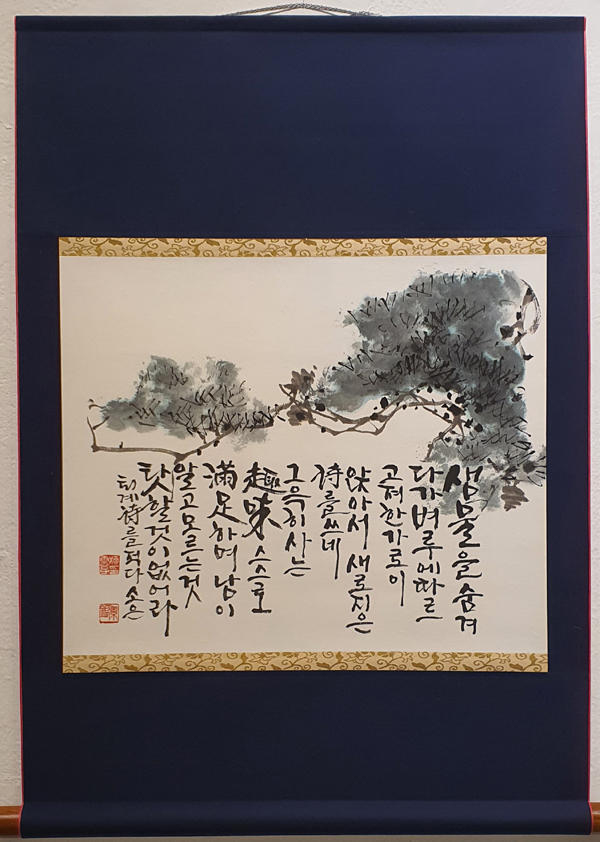 샘물을 숨겨
다가 벼루에 따르
고 저 한가로이
앉아서 새로 지은
詩를 쓰네
그윽히 사는
趣味 스스로
滿足하며 남이
알고 모르는 것
탓할 것이 없어라
퇴계 詩를 적다 소은